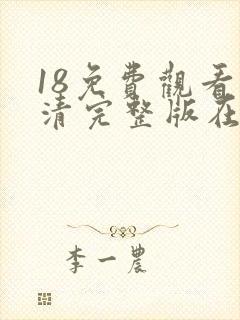 18免費觀看
清完整版在
李一農